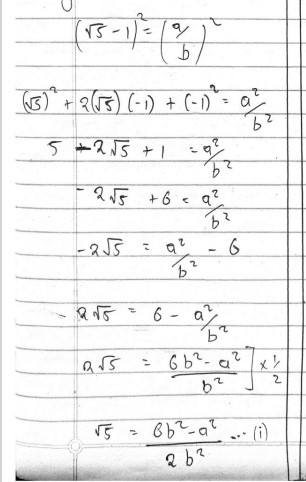 (√5 - 1)² = (a/b)²
(√5)² + 2(√5) (-1) + (-1)² = a²/b²
5 - 2√5 + 1 = a²/b²
- 2√5 + 6 = a²/b²
- 2√5 = a²/b² - 6
- 2√5 = 6 - a²/b²
2√5 = 6b² - a²/b² ] × 1/2
√5 = 6b² - a²/2b² ... (i)